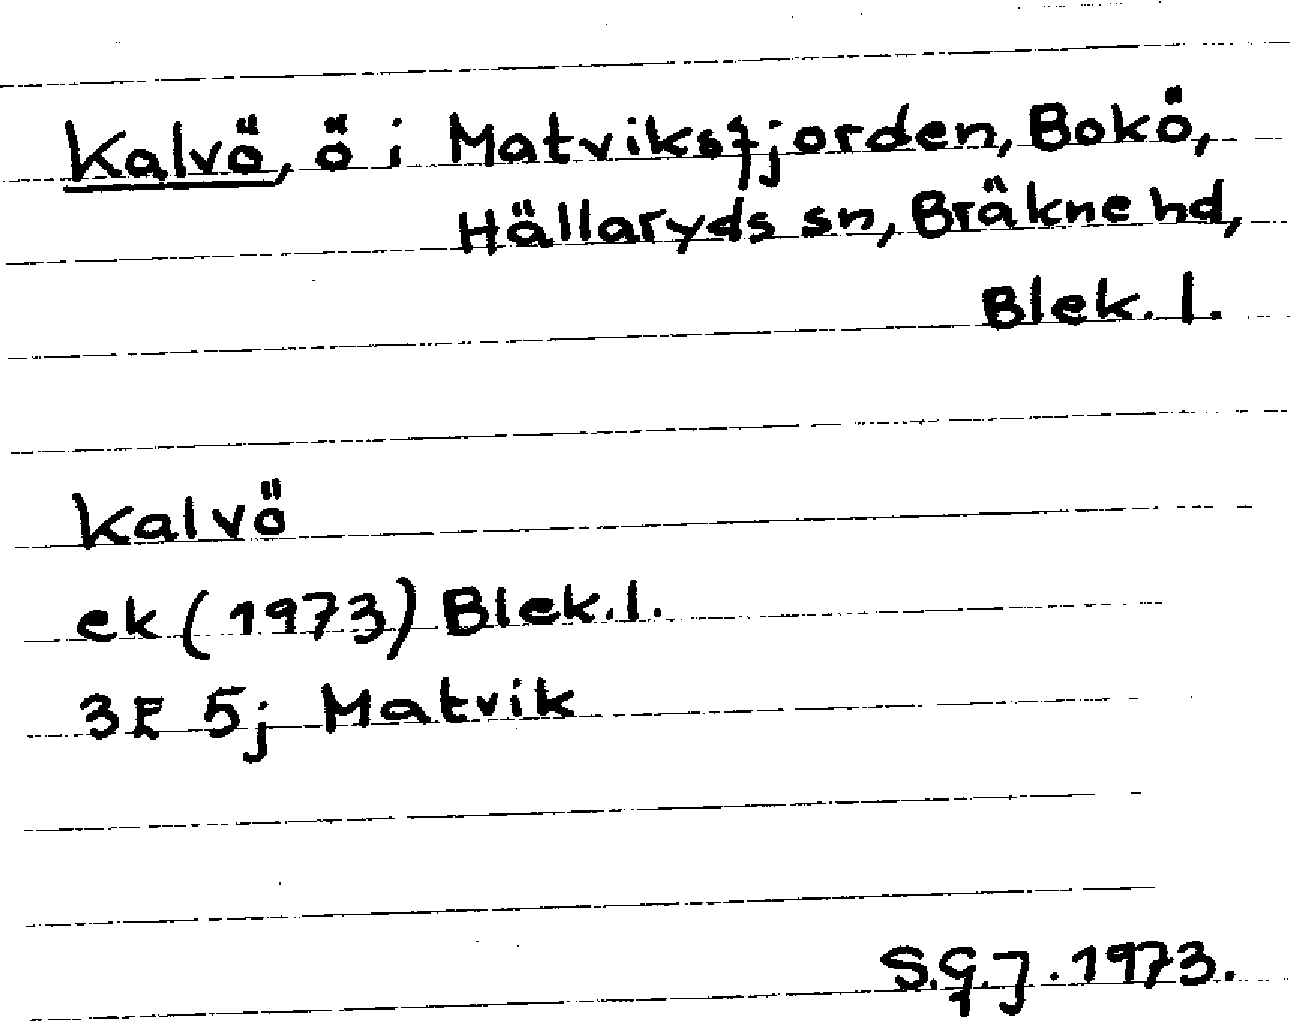 Kalvö, ö i Matviksfjorden, Bokö,
Hällaryds sn, Bräkne hd,
Blek. l.
Kalvö
ek (1973) Blek. l.
3E 5j Matvik
S.G.J. 1973.